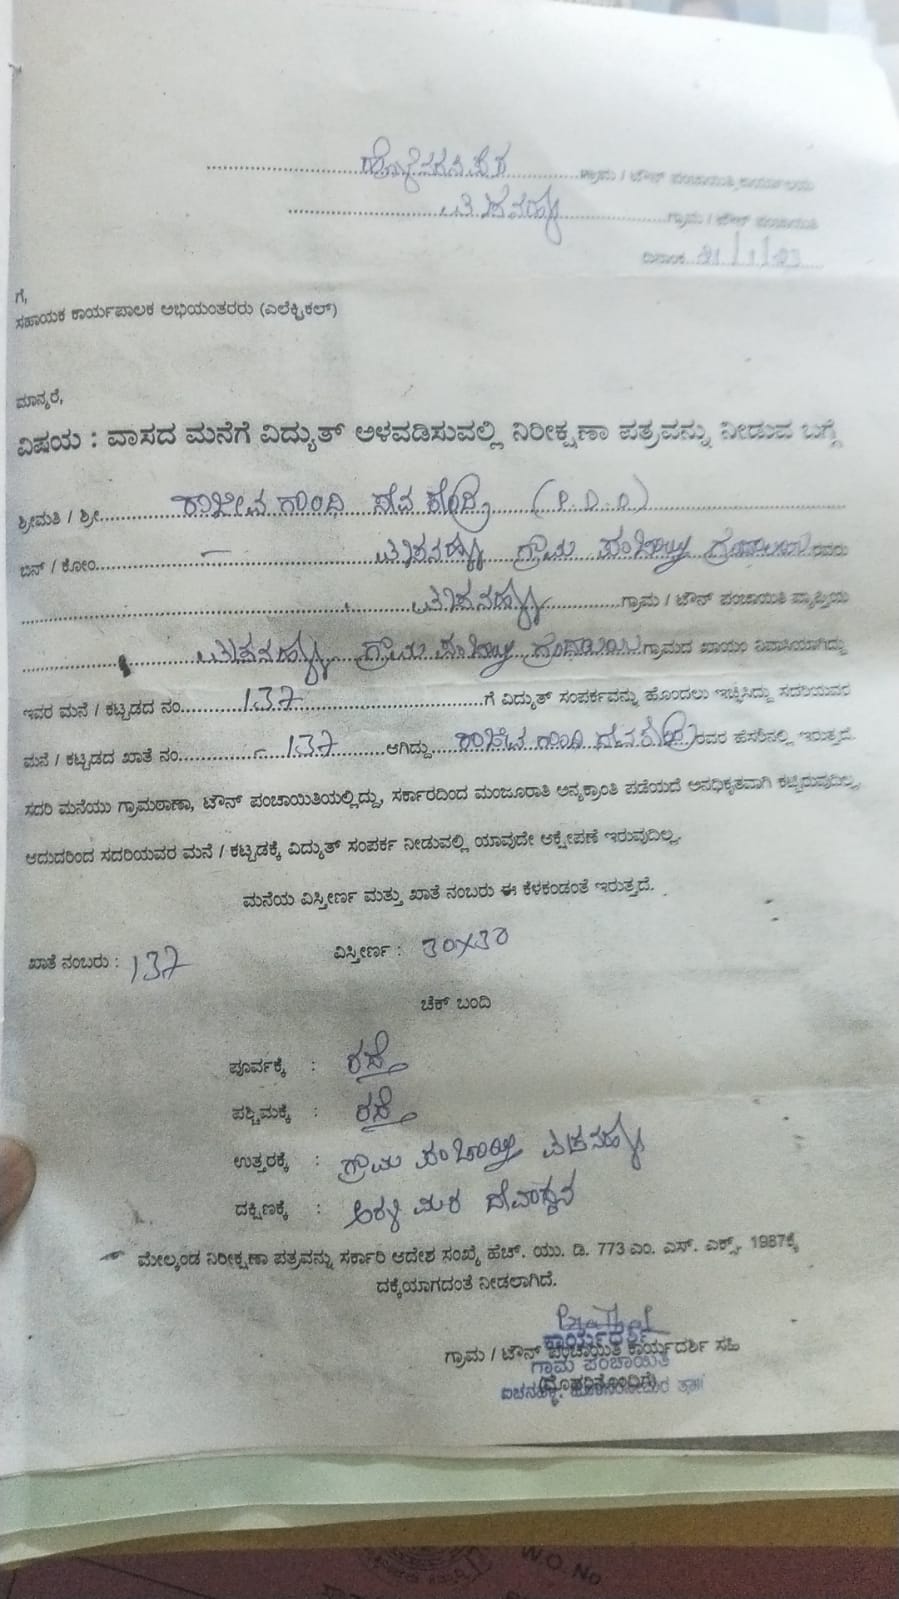 ಗ್ರಾಮ / ಟೌನ್ ಪಂಚಾಯಿತಿ ಕಾರ್ಯಾಲಯ
ಗ್ರಾಮ / ಟೌನ್ ಪಂಚಾಯಿತಿ
ದಿನಾಂಕ
ಗೆ,
ಸಹಾಯಕ ಕಾರ್ಯಪಾಲಕ ಅಭಿಯಂತರರು (ಎಲೆಕ್ಟ್ರಿಕಲ್)
ಮಾನ್ಯರೆ,
ವಿಷಯ : ವಾಸದ ಮನೆಗೆ ವಿದ್ಯುತ್ ಅಳವಡಿಸುವಲ್ಲಿ ನಿರೀಕ್ಷಣಾ ಪತ್ರವನ್ನು ನೀಡುವ ಬಗ್ಗೆ
ಶ್ರೀಮತಿ / ಶ್ರೀ ರಾಜೀವ ಗಾಂಧಿ ಸೇವ ಕೇಂದ್ರ (P.D.O)
ಬಿನ್ / ಕೋಂ ಗ್ರಾಮ ರವರು
ಗ್ರಾಮ / ಟೌನ್ ಪಂಚಾಯಿತಿ ವ್ಯಾಪ್ತಿಯ
ಗ್ರಾಮ ಗ್ರಾಮದ ಖಾಯಂ ನಿವಾಸಿಯಾಗಿದ್ದು
ಇವರ ಮನೆ / ಕಟ್ಟಡದ ನಂ 137 ಗೆ ವಿದ್ಯುತ್ ಸಂಪರ್ಕವನ್ನು ಹೊಂದಲು ಇಚ್ಛಿಸಿದ್ದು ಸದರಿಯವರ
ಮನೆ / ಕಟ್ಟಡದ ಖಾತೆ ನಂ 137 ಆಗಿದ್ದು ಗಾಂಧಿ ರವರ ಹೆಸರಿನಲ್ಲಿ ಇರುತ್ತದೆ.
ಸದರಿ ಮನೆಯು ಗ್ರಾಮಠಾಣಾ, ಟೌನ್ ಪಂಚಾಯಿತಿಯಲ್ಲಿದ್ದು, ಸರ್ಕಾರದಿಂದ ಮಂಜೂರಾತಿ ಅನ್ಯಕ್ರಾಂತಿ ಪಡೆಯದೆ ಅನಧಿಕೃತವಾಗಿ ಕಟ್ಟಿರುವುದಿಲ್ಲ,
ಆದುದರಿಂದ ಸದರಿಯವರ ಮನೆ / ಕಟ್ಟಡಕ್ಕೆ ವಿದ್ಯುತ್ ಸಂಪರ್ಕ ನೀಡುವಲ್ಲಿ ಯಾವುದೇ ಆಕ್ಷೇಪಣೆ ಇರುವುದಿಲ್ಲ.
ಮನೆಯ ವಿಸ್ತೀರ್ಣ ಮತ್ತು ಖಾತೆ ನಂಬರು ಈ ಕೆಳಕಂಡಂತೆ ಇರುತ್ತದೆ.
ಖಾತೆ ನಂಬರು : 137 ವಿಸ್ತೀರ್ಣ : 30x30
ಚೆಕ್ ಬಂದಿ
ಪೂರ್ವಕ್ಕೆ : ರಸ್ತೆ
ಪಶ್ಚಿಮಕ್ಕೆ : ರಸ್ತೆ
ಉತ್ತರಕ್ಕೆ : ಗ್ರಾಮ
ದಕ್ಷಿಣಕ್ಕೆ : ಅರಳಿ ಮರ ದೇವಾಸ್ಥನ
ಮೇಲ್ಕಂಡ ನಿರೀಕ್ಷಣಾ ಪತ್ರವನ್ನು ಸರ್ಕಾರಿ ಆದೇಶ ಸಂಖ್ಯೆ ಹೆಚ್. ಯು. ಡಿ. 773 ಎಂ. ಎಸ್. ಎಕ್ಸ್. 1987ಕ್ಕೆ
ದಕ್ಕೆಯಾಗದಂತೆ ನೀಡಲಾಗಿದೆ.
ಕಾರ್ಯದರ್ಶಿ
ಗ್ರಾಮ / ಟೌನ್ ಪಂಚಾಯಿತಿ ಕಾರ್ಯದರ್ಶಿ ಸಹಿ
ಗ್ರಾಮ ಪಂಚಾಯಿತಿ
(ಮೊಹರಿನೊಂದಿಗೆ)
W.O.No